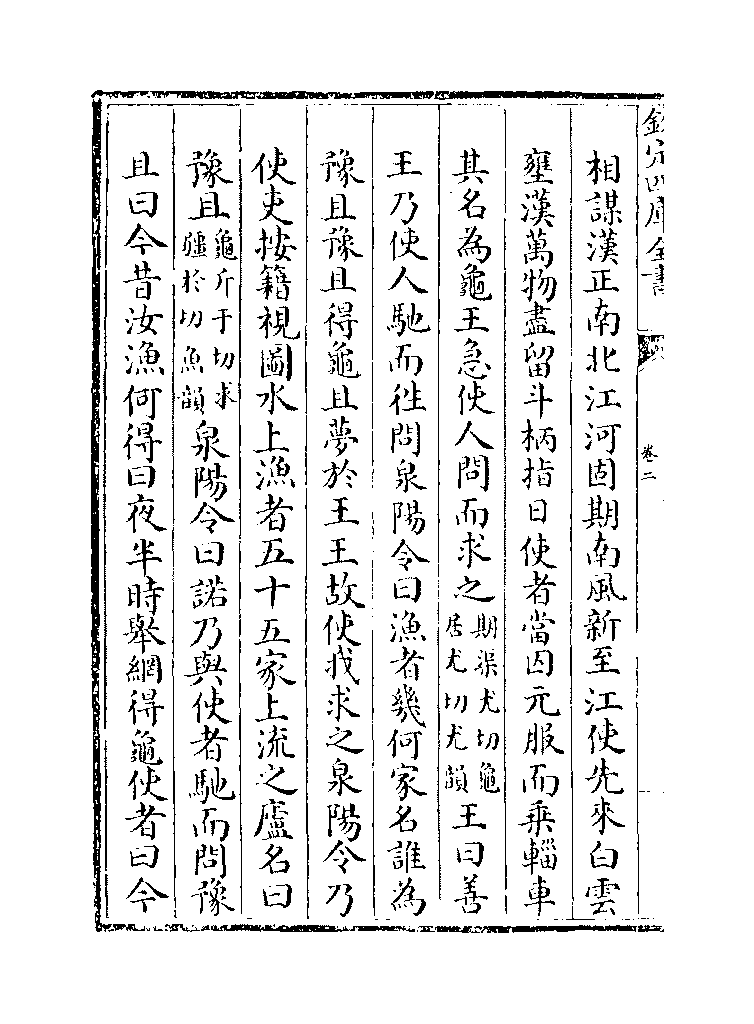 欽定四庫全書
卷二
相謀漢正南北江河固期南風新至江使先來白雲
壅漢萬物盡留斗柄指日使者當囚元服而乗輜車
其名為龜王急使人問而求之期渠尤切龜居尤切尤韻王曰善
王乃使人馳而徃問泉陽令曰漁者幾何家名誰為
豫且豫且得龜且夢於王王故使我求之泉陽令乃
使吏按籍視圖水上漁者五十五家上流之廬名曰
豫且龜斤于切求彊於切魚韻泉陽令曰諾乃與使者馳而問豫
且曰今昔汝漁何得曰夜半時舉網得龜使者曰今